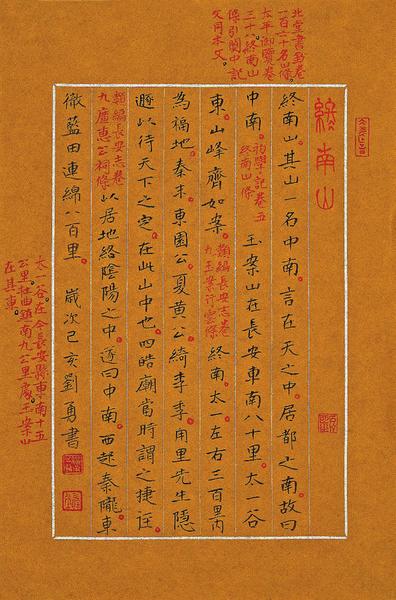 北堂書鈔卷
一百六十名山條。
太平御覽卷
三十八終南山
條引關中記
文同本文。
終南山
終南山。其山一名中南。言在天之中。居都之南。故曰
中南。初學記卷五終南山條 玉案山在長安東南八十里。太一谷
東。山峰齊如案。類編長安志卷九玉案 終南太一左右三百里內
為福地。秦末東園公夏黃公綺李季用里先生隱
遯以待天下之定。在此山中也。四皓廟當時謂之捷徑
類編長安志卷九 惠公祠條 以居地絡陰陽之中。遂曰中南。西起秦隴東
徹藍田連綿八百里。 歲次己亥劉勇書
太一谷。在今長安縣東南十五
公里杜曲鎮南九公里處。玉案山
在其東。